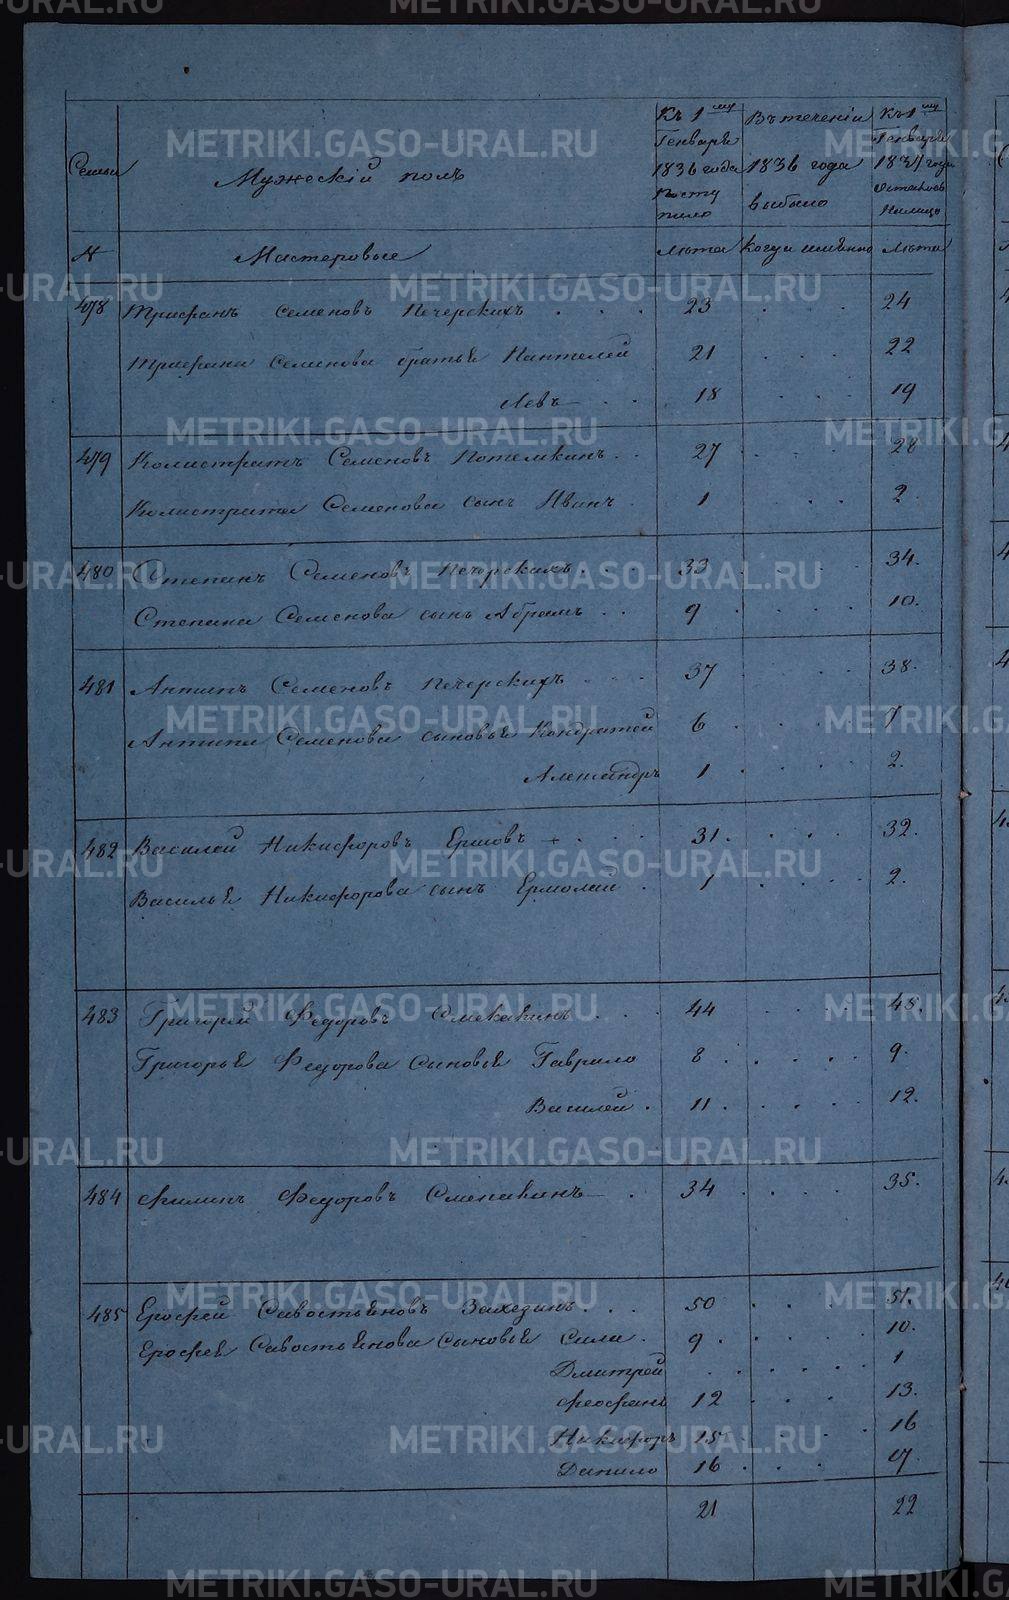 Семьи
Мужескій полъ
Къ 1му Генваря 1836 года поступило
Въ теченіи 1836 года выбыло
Къ 1му Генваря 1837 года осталось налицо
№ Мастеровые Лѣта Когда именно Лѣта
478 Трифанъ Семеновъ Печерскихъ . . . 23 . . 24
Трифана Семенова братья Пантелей 21 . . . 22
Левъ . . 18 . . . 19
479 Колистратъ Семеновъ Потемкинъ . . 27 . . . 28
Колистрата Семенова сынъ Иванъ . 1 . . 2.
480 Степанъ Семеновъ Печорскихъ . . . 33 . . . 34.
Степана Семенова сынъ Абрамъ . . 9 . . . 10.
481 Антипъ Семеновъ Печерскихъ . . . 37 . . . 38.
Антипа Семенова сыновья Кондратей 6 . . . 7
Александръ 1 . . . 2.
482 Василей Никифоровъ Ершовъ + . . . 31 . . . . 32.
Василья Никифорова сынъ Ермолай . 1 . . . . 2.
483 Григорей Федоровъ Смекавинъ . . . 44 . . . 45.
Григорья Федорова сыновья Гаврило 8 . . . . 9.
Василей . 11 . . . . 12.
484 Филипъ Федоровъ Смекавинъ . 34 . . . . 35.
485 Ерофей Савостьяновъ Вахезинъ . . . 50 . . . 51.
Ерофея Савостьянова сыновья Сила . 9 . . . . 10.
Дмитрей . . . . . 1
Феофанъ 12 . . . 13.
Никифоръ 15 . . . 16
Данило 16 . . . 17.
21 22
METRIKI.GASO-URAL.RU